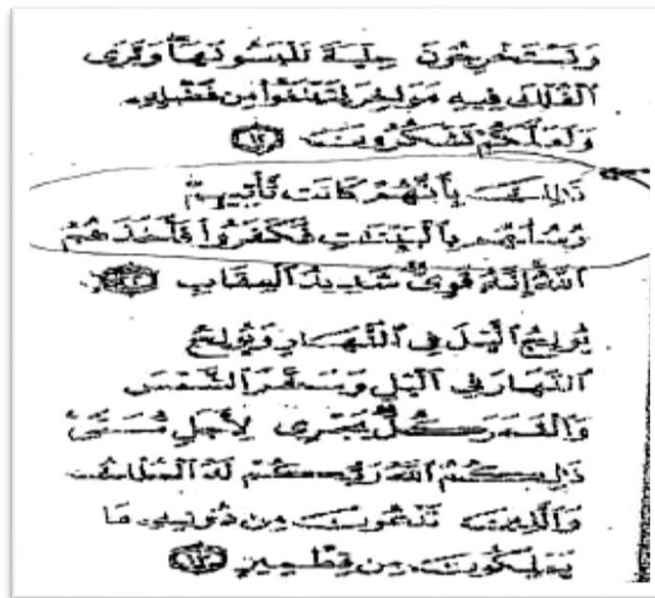 وَتَسْتَخْرِجُونَ حِلْيَةً تَلْبَسُونَهَاۖ وَتَرَى
ٱلْفُلْكَ فِيهِ مَوَاخِرَ لِتَبْتَغُوا۟ مِن فَضْلِهِۦ
وَلَعَلَّكُمْ تَشْكُرُونَ ١٢
ذَٰلِكَ بِأَنَّهُمْ كَانَت تَّأْتِيهِمْ
رُسُلُهُم بِٱلْبَيِّنَٰتِ فَكَفَرُوا۟ فَأَخَذَهُمُ
ٱللَّهُۚ إِنَّهُۥ قَوِىٌّ شَدِيدُ ٱلْعِقَابِ
يُولِجُ ٱلَّيْلَ فِى ٱلنَّهَارِ وَيُولِجُ
ٱلنَّهَارَ فِى ٱلَّيْلِ وَسَخَّرَ ٱلشَّمْسَ
وَٱلْقَمَرَ كُلٌّ يَجْرِى لِأَجَلٍ مُّسَمًّىۚ
ذَٰلِكُمُ ٱللَّهُ رَبُّكُمْ لَهُ ٱلْمُلْكُۚ
وَٱلَّذِينَ تَدْعُونَ مِن دُونِهِۦ مَا
يَمْلِكُونَ مِن قِطْمِيرٍ ١٣